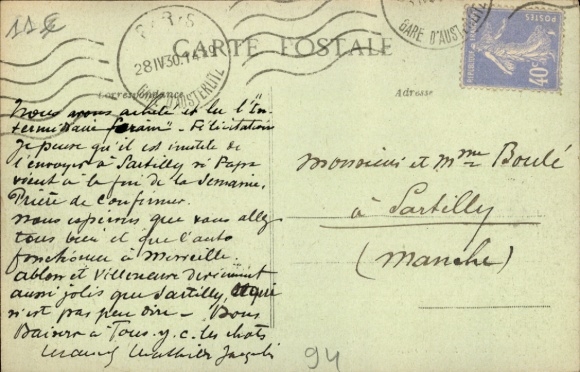 11 €
PARIS
28 IV 30. 14 19
GARE D'AUSTERLITZ
GARE D'AUSTERLITZ
POSTES
REPUBLIQUE FRANÇAISE
40c
CARTE POSTALE
Correspondance
Adresse
Nous avons acheté et lu l'"In-
termittane" - Félicitations
Je pense qu'il est inutile de
l'envoyer à Sartilly si Papa
vient à la fin de la semaine.
Prière de confirmer.
Nous espérons que vous allez
tous bien et que l'auto
fonctionne à merveille.
Ablon et Villeneuve deviennent
aussi jolis que Sartilly, ce qui
n'est pas peu dire - Bons
Baisers à Tous. y. c. les chats
Monsieur et Mme Boulé
à Sartilly
(Manche)
94